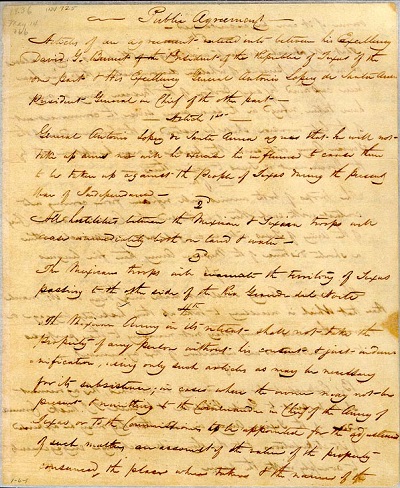 1836 No 125
May 14
Public Agreement
Articles of an agreement entered into between his Excellency
David G. Burnet of the President of the Republic of Texas of the
one part & His Excellency General Antonio Lopez de Santa Anna
President General in Chief of the oth part—
Article 1st
General Antonio Lopez de Santa Anna agrees that he will not
take up arms nor will he exercise his influence to cause them
to be taken up against the People of Texas during the present
War of Independence—
2d
All hostilities between the Mexican & Texian troops will
cease immediately both on land & water—
3d
The Mexican troops will evacuate the territory of Texas
passing to the oth side of the Rio Grande del Norte
4th
The Mexican Army in its retreat shall not take the
property of any person without his consent & just indem-
nification, using only such articles as may be necessary
for its subsistence, in cases where the owner may not be
present & remitting to the Commander in Chief of the Army of
Texas or to the Commissioner to be appointed for the adjustment
of such matters, an account of the value of the property
consumed, the place where taken & the name of the